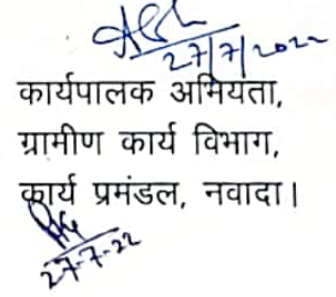 27/7/2022
कार्यपालक अभियता,
ग्रामीण कार्य विभाग,
कार्य प्रमंडल, नवादा।
27-7-22